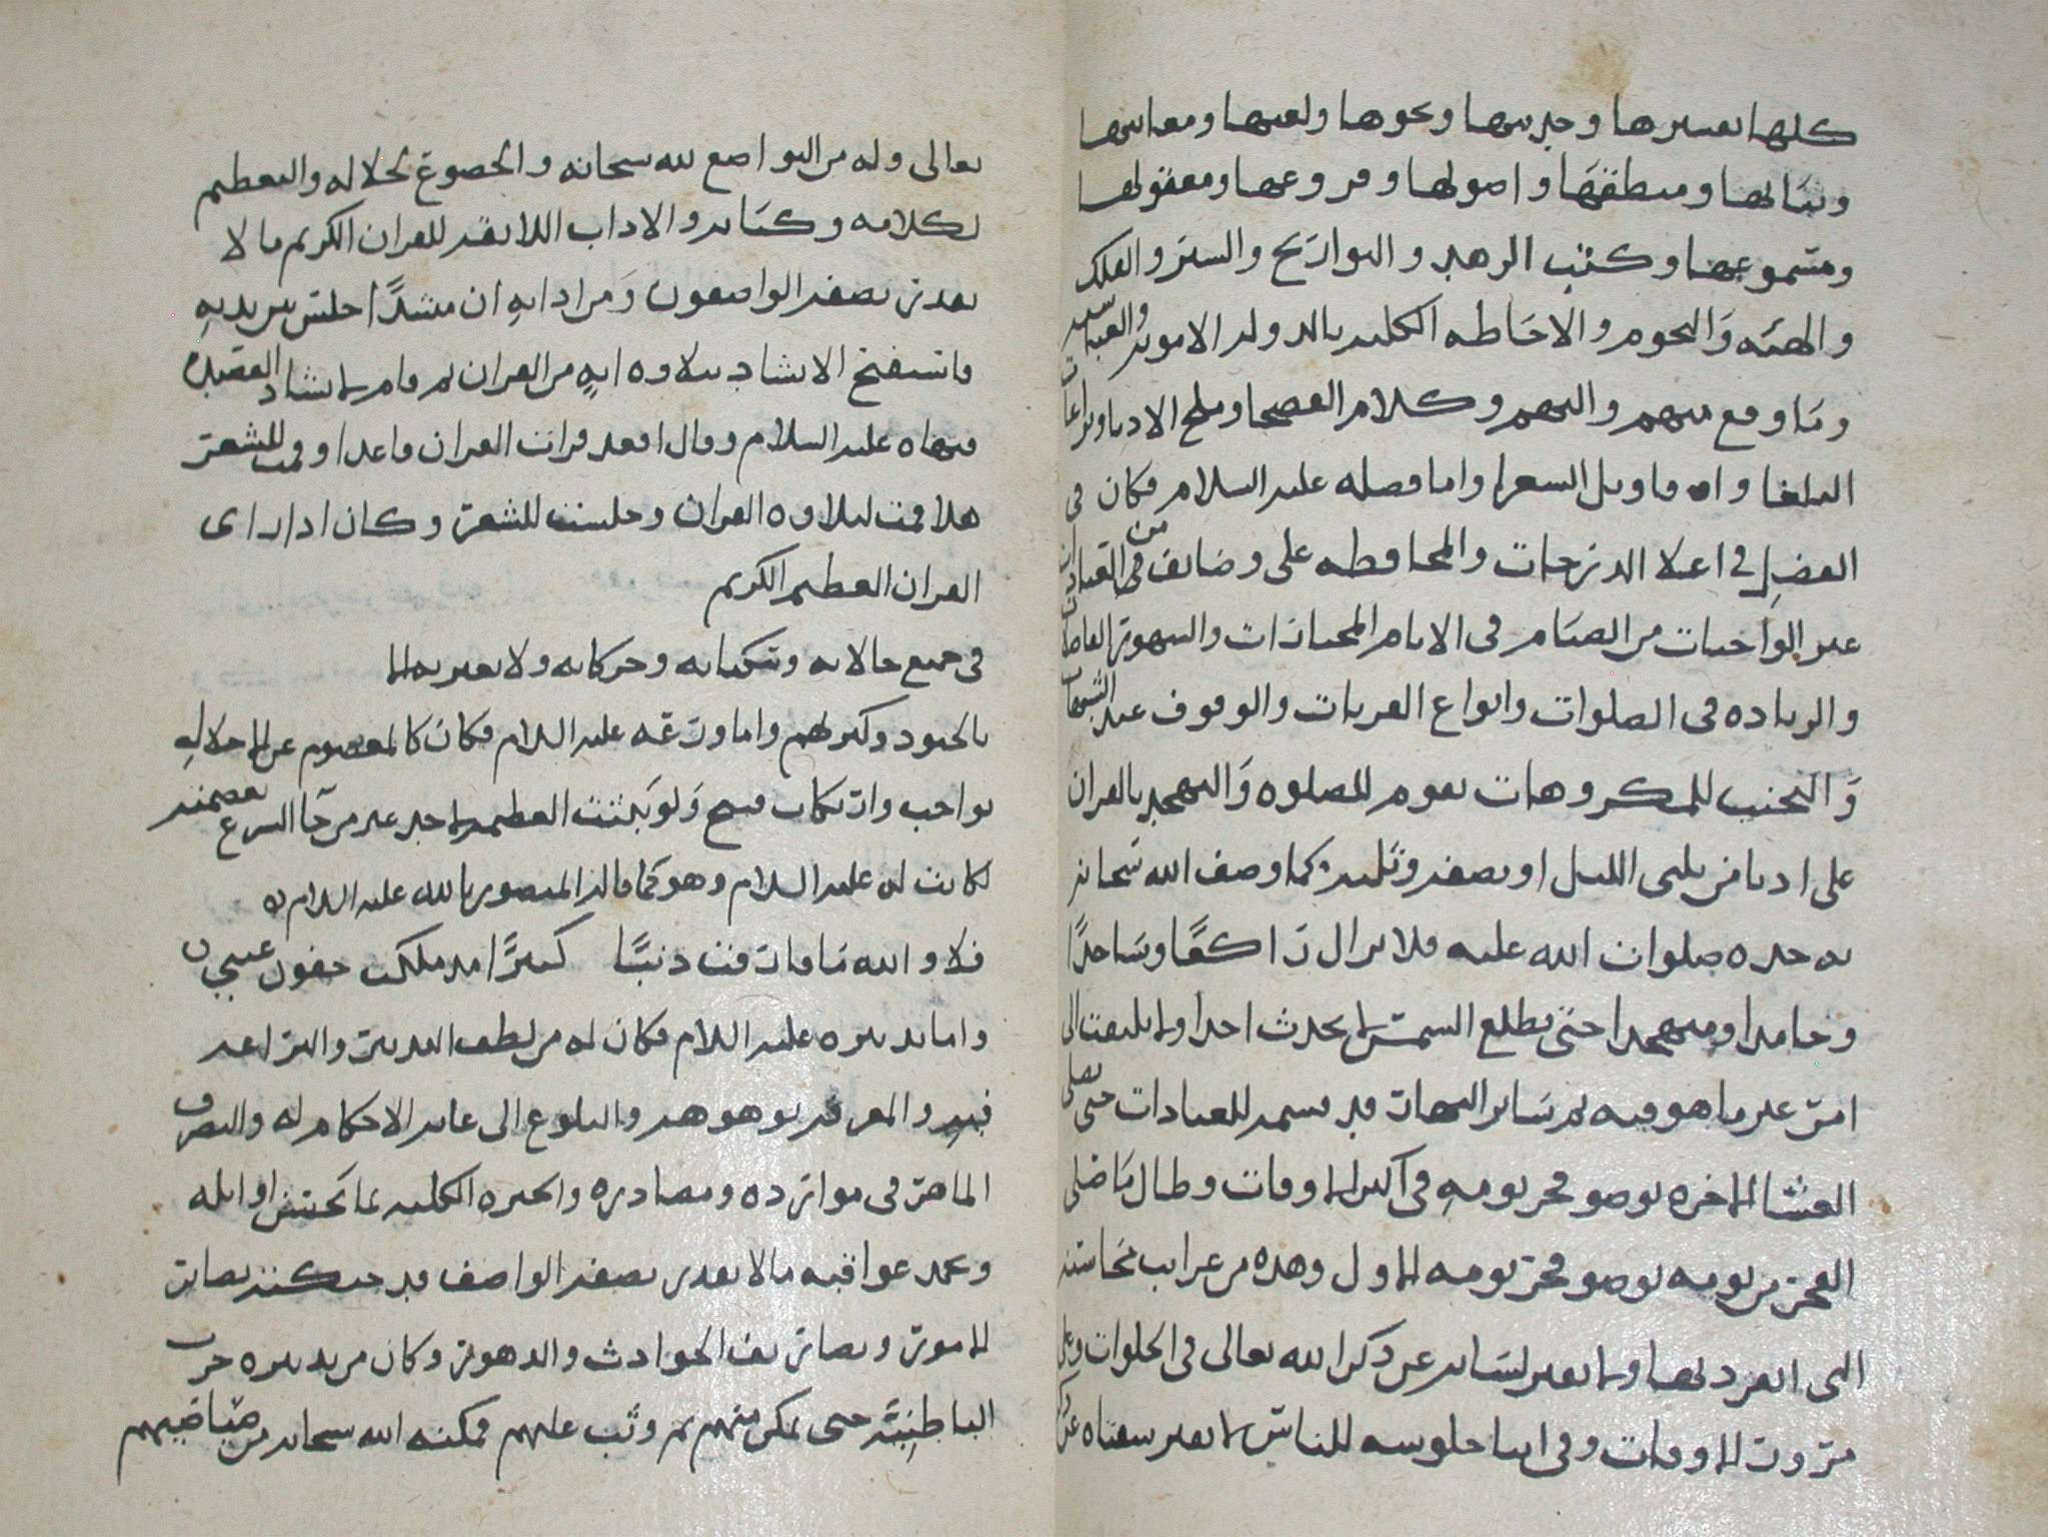 كلها تفسيرها وحديثها ونحوها ولغتها ومعانيها
وبيانها ومنطقها واصولها وفروعها ومعقولها
ومسموعها وكتب الزهد والتواريخ والسير والفلك
والهيئه والنجوم والاحاطه الكليه بالدوله الامويه والعباسيه
وما وقع منهم واليهم وكلام الفصحا وملح الادبا وبراعات
البلغا واقاويل الشعرا واما فضله عليه السلام فكان في
الفضل في اعلا الدرجات والمحافظه على وضائف من العبادات
غير الواجبات من الصيام في الايام المختارات والشهور الفاضلات
والزياده في الصلوات وانواع القربات والوقوف عند الشبهات
والتجنب للمكروهات يقوم للصلوه والتهجد بالقران
على ادنا من ثلثي الليل او نصفه وثلثه كما وصف الله سبحانه
به جده صلوات الله عليه فلا يزال راكعا وساجدا
وحامدا ومتهجدا حتى تطلع الشمس لا يحدث احدا ولا يلتفت الى
امر غير ما هو فيه ثم سائر النهار قد قسمه للعبادات حتى يصلي
العشا الاخره بوضو فجر يومه في اكثر الاوقات وطال ما صلى
الفجر من يومه بوضو فجر يومه الاول وهذه من غرائب محاسنه
التي انفرد بها ولا يفتر لسانه عن ذكر الله تعالى في الخلوات وعلى
مرور الاوقات وفي اثنا جلوسه للناس لا تفتر شفتاه عن ذكر
تعالى وله من التواضع لله سبحانه والخضوع لجلاله والتعظيم
لكلامه وكتابه والاداب اللائقه للقران الكريم ما لا
يقدر يصفه الواصفون ومن ادابه ان منشدا جلس بين يديه
واستفتح الانشاد بتلاوه ايه من القران ثم قام لانشاد القصيده
فنهاه عليه السلام وقال افقد قرات القران قاعدا وقمت للشعر
هلا قمت لتلاوه القران وجلست للشعر وكان اذا راى
القران العظيم الكريم
في جميع حالاته وسكناته وحركاته ولا يغتر
بالجنود وكثرتهم واما ورعه عليه السلام فكان كالمعصوم عن الاخلال
بواجب وارتكاب قبيح ولو بينت العظمه لاحد غير من جا الشرع بعصمته
لكانت له عليه السلام وهو كما قال المنصور بالله عليه السلام
فلا والله ما قارفت ذنبا كبيرا مذ ملكت جفون عيني
واما تدبيره عليه السلام فكان له من لطف التدبير والبراعه
فيه والمعرفه بوجوهه والبلوغ الى غايه الاحكام له والتصرف
الماهر في موارده ومصادره والخبره الكليه بما تحسن اوائله
وتحمد عواقبه ما لا يقدر يصفه الواصف قد حنكته نصائر
الامور وتصاريف الحوادث والدهور وكان من تدبيره حرب
الباطنيه حتى تمكن منهم ثم وثب عليهم فمكنه الله سبحانه من صياصيهم